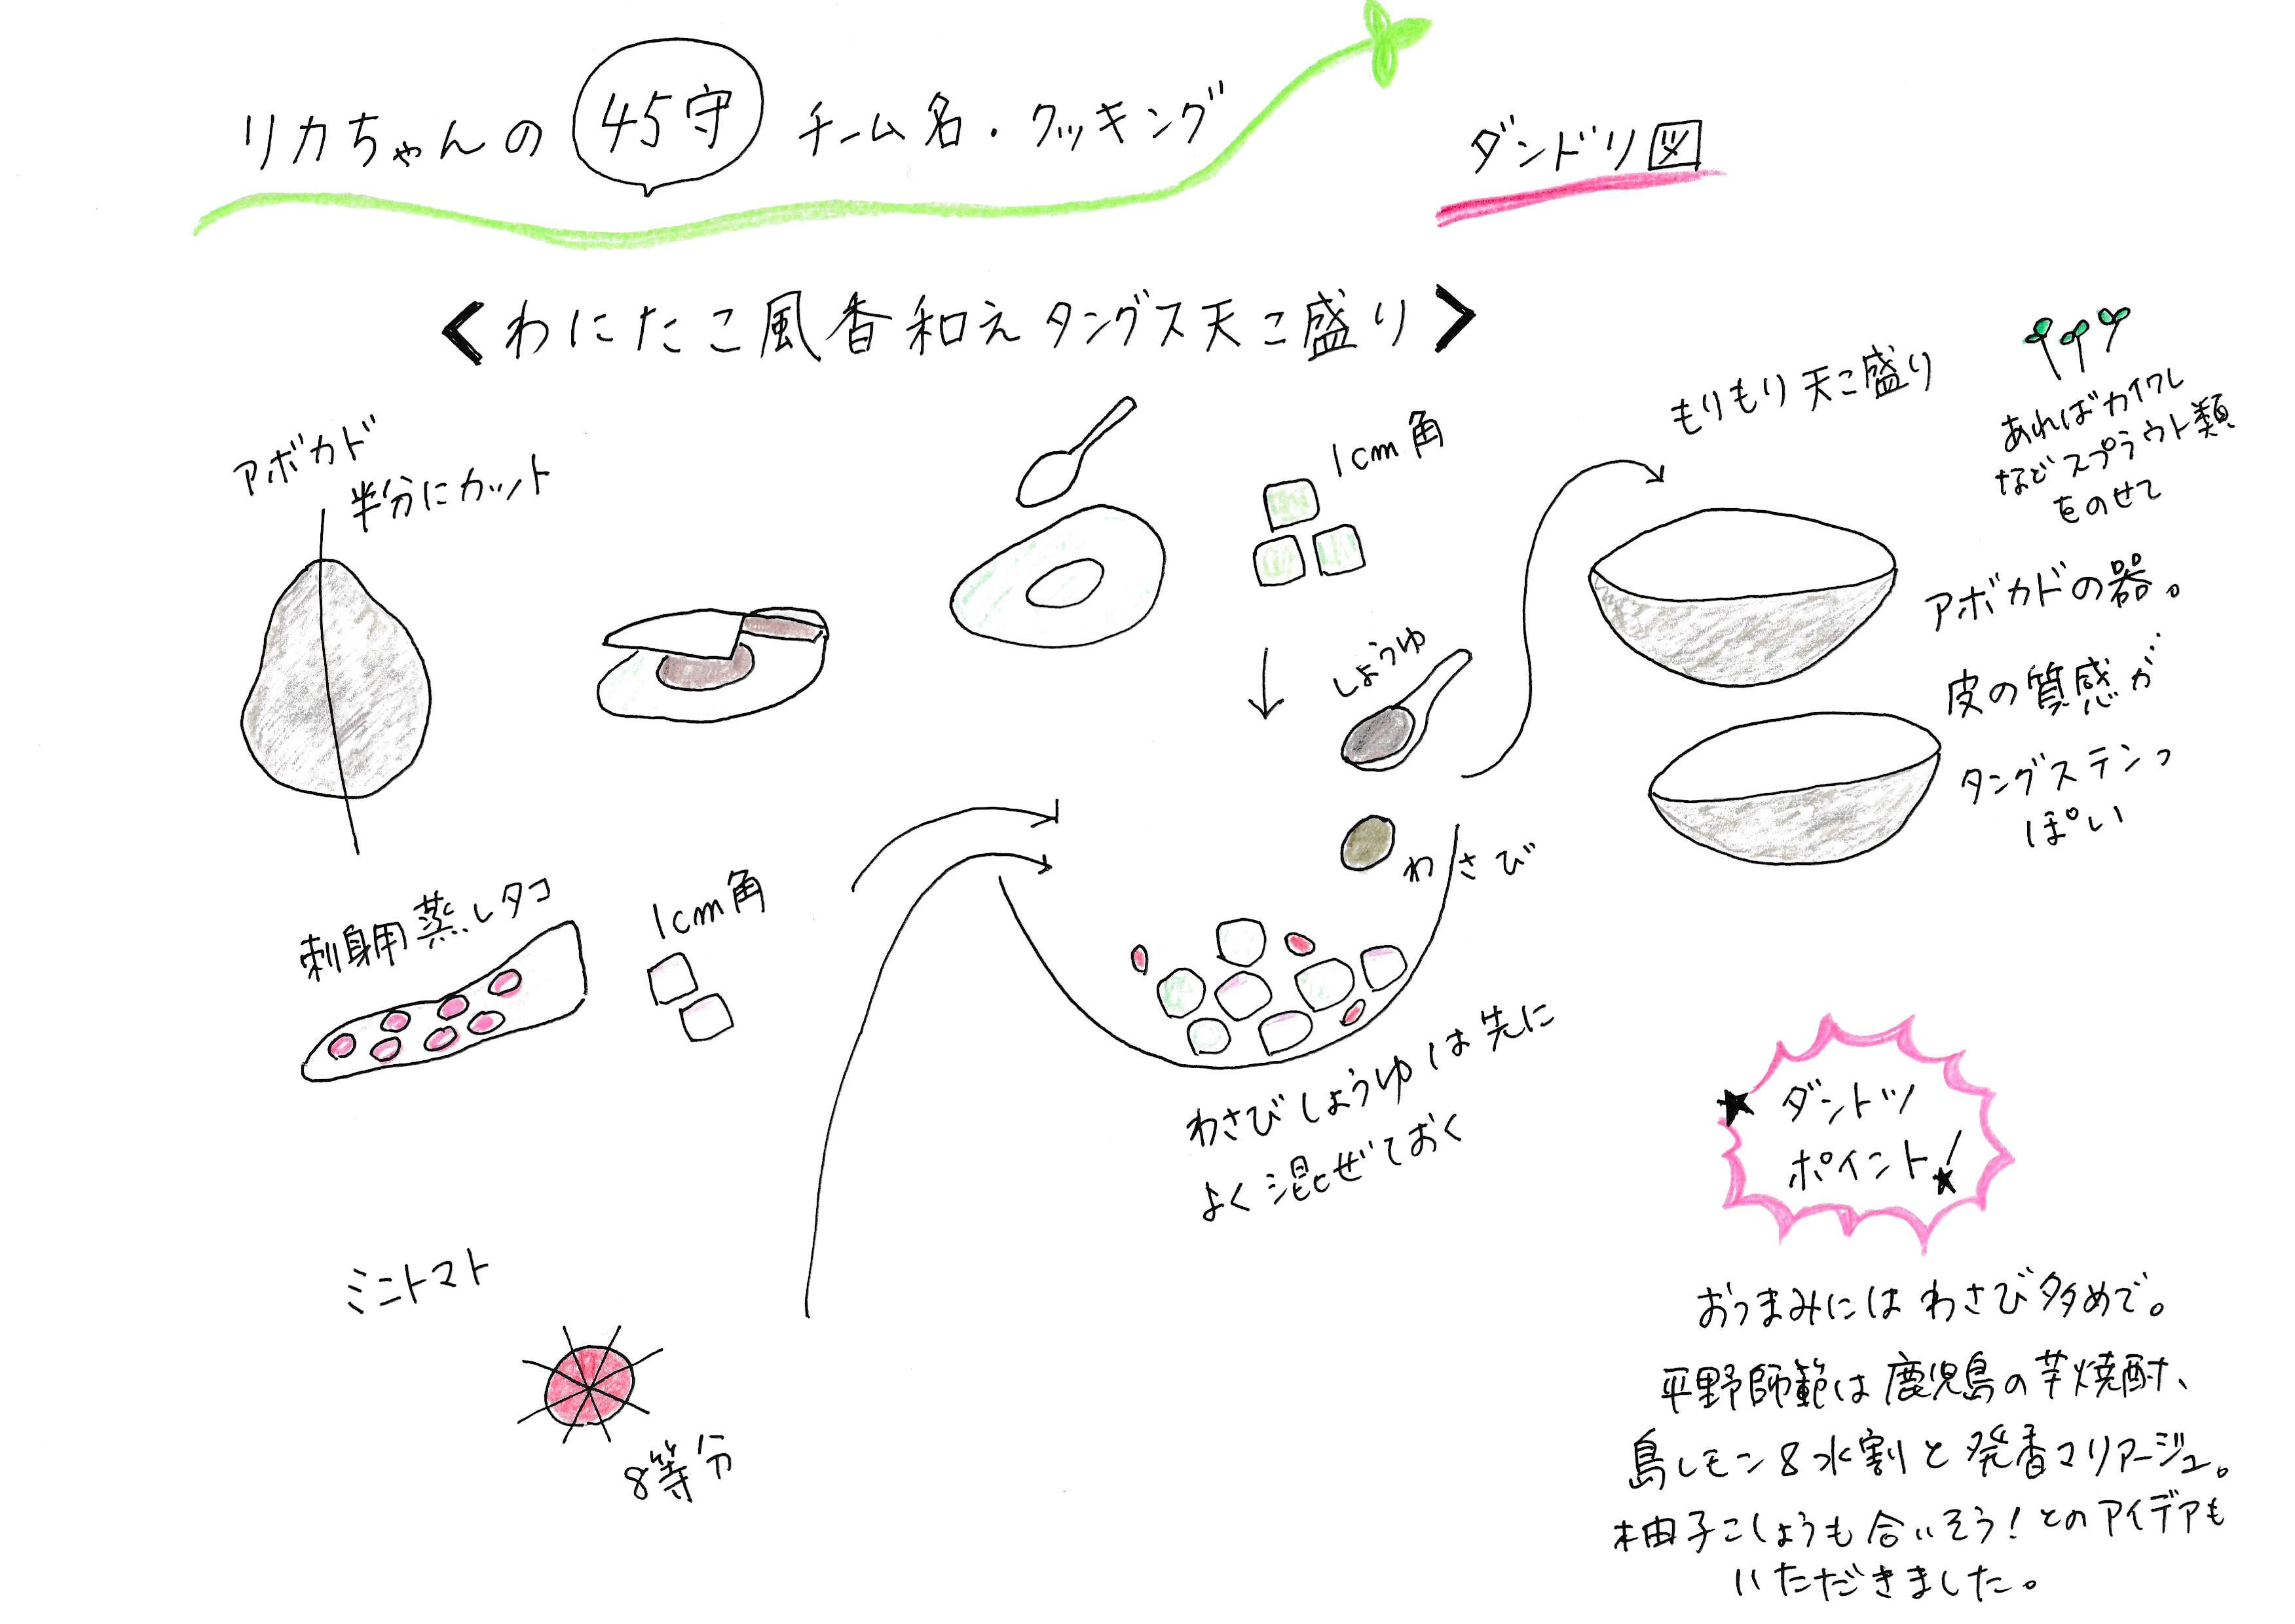 リカちゃんの 45守 チーム名・クッキング
ダンドリ図
<わにたこ風香和えタングス天こ盛り>
アボカド
半分にカット
1cm角
しょうゆ
わさび
もりもり天こ盛り
あればカイワレ
などスプラウト類
をのせて
アボカドの器。
皮の質感が
タングステンっ
ぽい
刺身用蒸しタコ
1cm角
わさびしょうゆは先に
よく混ぜておく
ミニトマト
8等分
★ダントツ
ポイント!★
おつまみにはわさび多めで。
平野師範は鹿児島の芋焼酎、
島レモン&水割と発香マリアージュ。
柚子こしょうも合いそう!とのアイデアも
いただきました。